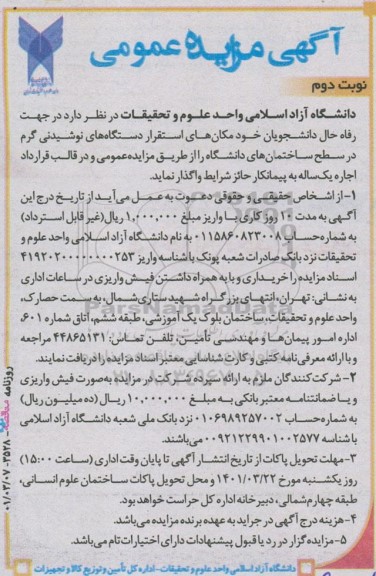 آگهی مزایده عمومی
نوبت دوم
دانشگاه آزاد اسلامی واحد علوم و تحقیقات در نظر دارد در جهت
رفاه حال دانشجویان خود مکان‌های استقرار دستگاه‌های نوشیدنی گرم
در سطح ساختمان‌های دانشگاه را از طریق مزایده‌عمومی و در قالب قرارداد
اجاره یک‌ساله به پیمانکار حائز شرایط واگذار نماید.
۱-از اشخاص حقیقی و حقوقی دعوت به عمل می‌آید از تاریخ درج این
آگهی به مدت ۱۰ روز کاری با واریز مبلغ ۱,۰۰۰,۰۰۰ ریال(غیر قابل استرداد)
به شماره حساب ۰۱۱۵۸۶۰۸۲۳۰۰۸ به نام دانشگاه آزاد اسلامی واحد علوم و
تحقیقات نزد بانک صادرات شعبه پونک با شناسه واریز ۴۱۹۲۰۲۰۰۰۰۰۰۰۰۲۵۳
اسناد مزایده را خریداری و با به همراه داشتن فیش واریزی در ساعات اداری
به نشانی: تهران، انتهای بزرگراه شهید ستاری‌شمال، به سمت حصارک،
واحد علوم و تحقیقات، ساختمان بلوک یک آموزشی، طبقه ششم، اتاق شماره ۶۰۱،
اداره امور پیمان‌ها و مهندسی تأمین، تلفن تماس: ۴۴۸۶۵۱۳۱ مراجعه
و با ارائه معرفی‌نامه کتبی و کارت شناسایی معتبر اسناد مزایده را دریافت نمایند.
۲- شرکت‌کنندگان ملزم به ارائه سپرده شرکت در مزایده به‌صورت فیش واریزی
و یا ضمانتنامه معتبر بانکی به مبلغ ۱۰,۰۰۰,۰۰۰ ریال (ده میلیون ریال)
به شماره‌حساب ۰۱۰۶۹۸۹۲۵۷۰۰۲ نزد بانک ملی شعبه دانشگاه آزاد اسلامی
با شناسه ۰۰۹۲۱۲۲۹۹۰۱۰۰۲۵۷۷ می‌باشند.
۳- مهلت تحویل پاکات از تاریخ انتشار آگهی تا پایان وقت اداری (ساعت ۱۵:۰۰)
روز یکشنبه مورخ ۱۴۰۱/۰۳/۲۲ و محل تحویل پاکات ساختمان علوم انسانی،
طبقه چهارم‌شمالی، دبیرخانه اداره کل حراست خواهد بود.
۴-هزینه درج آگهی در جراید به عهده برنده مزایده می‌باشد.
۵-مزایده‌گزار در رد یا قبول پیشنهادات دارای اختیارات تام می‌باشد.
دانشگاه آزاد اسلامی واحد علوم و تحقیقات-اداره کل تأمین و توزیع کالا و تجهیزات
روزنامه
۰۱/۰۳/۰۷-۳۵۲۸